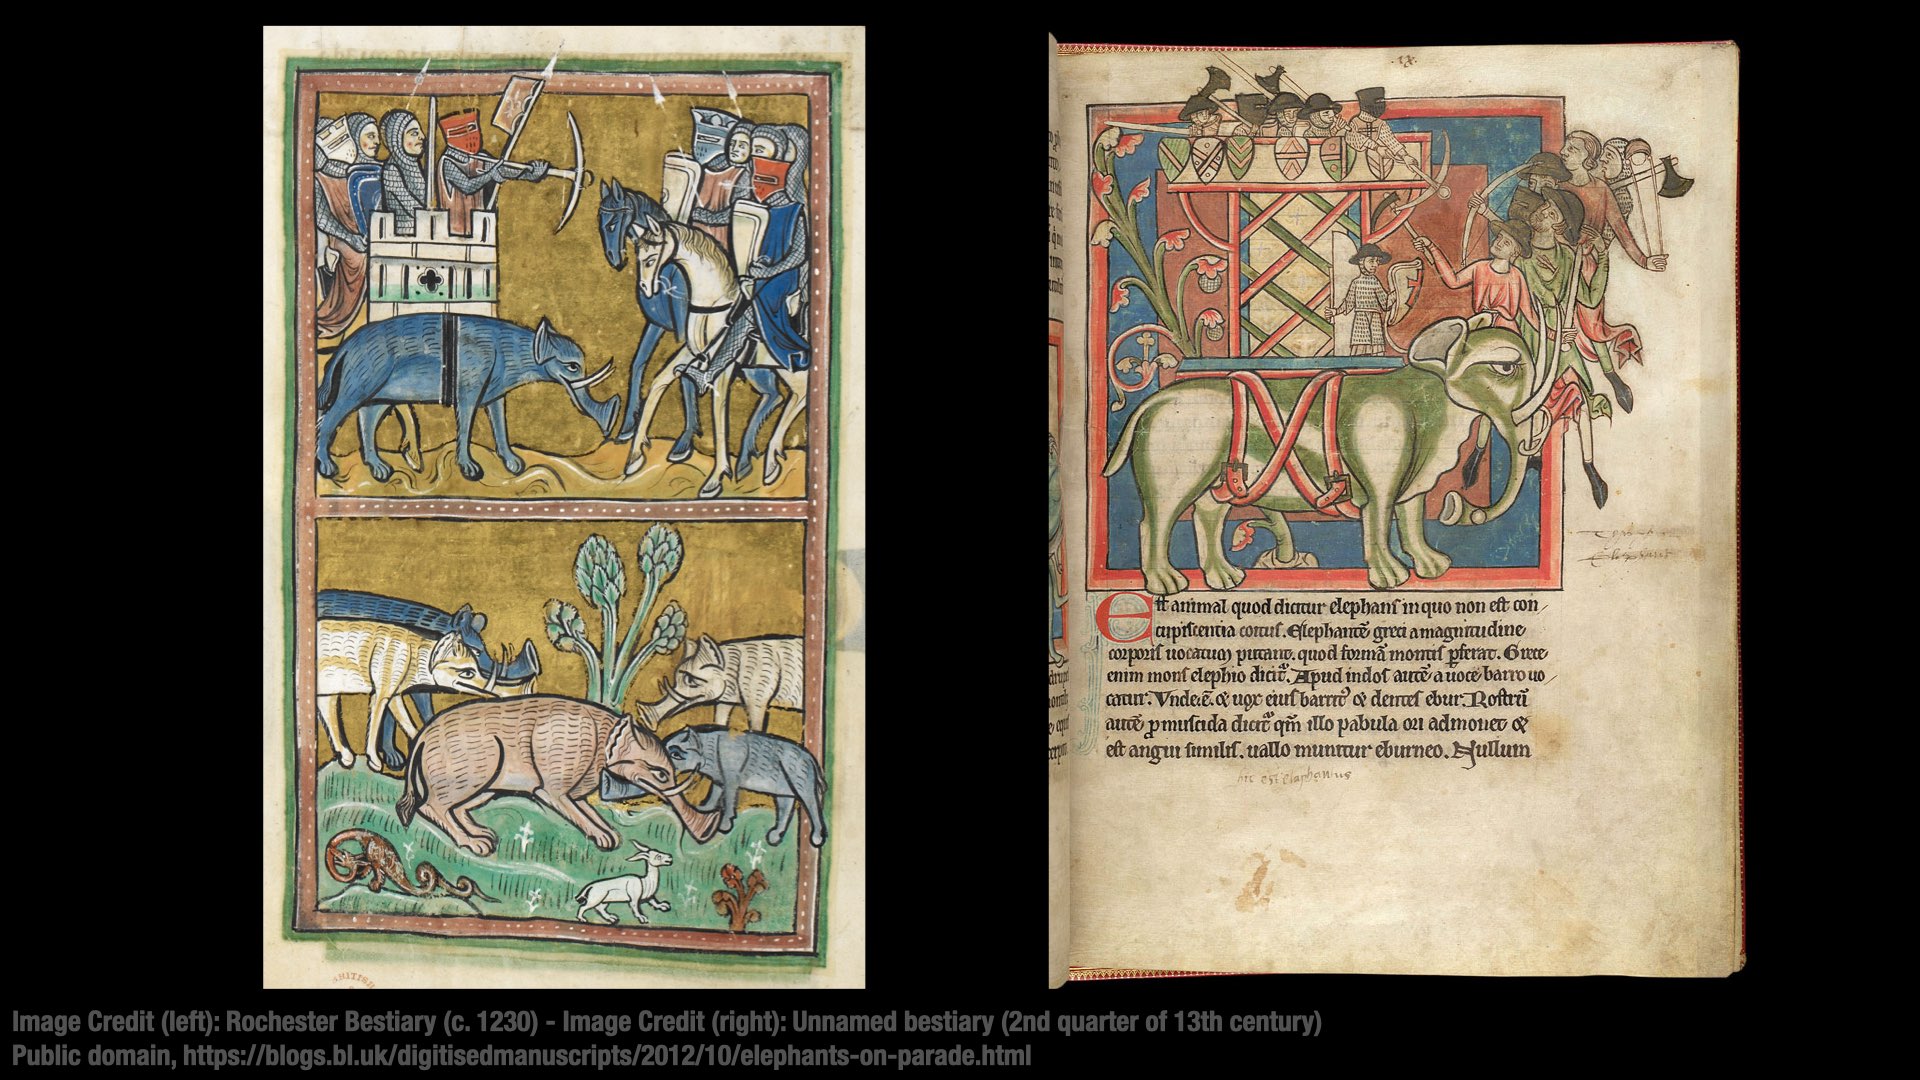 .ix.
Est animal quod dicitur elephans in quo non est con
cupiscentia coitus. Elephantē greci a magnitudine
corporis uocatum putant. quod formā montis p̄ferat. Grece
enim mons elephio dicit᷒. Apud indos autē a uoce barro uo
catur. Vnde.ē. & uox eius barrit᷒ & dentes ebur. Rostrū
autē ꝓmuscida dicit᷒ qm̄ illo pabula ori admouet &
est angui similis. uallo munitur eburneo. Nullum
hic est elaphantus
Image Credit (left): Rochester Bestiary (c. 1230) - Image Credit (right): Unnamed bestiary (2nd quarter of 13th century)
Public domain, https://blogs.bl.uk/digitisedmanuscripts/2012/10/elephants-on-parade.html